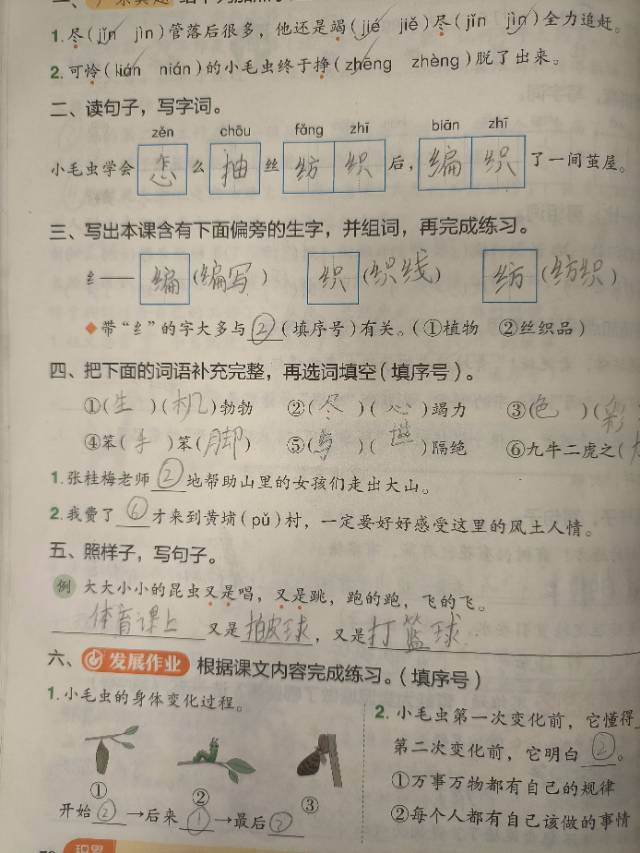 1.尽(jǐn jìn)管落后很多,他还是竭(jié jiě)尽(jǐn jìn)全力追赶。
2.可怜(lián nián)的小毛虫终于挣(zhēng zhèng)脱了出来。
二、读句子,写字词。
zěn chōu fǎng zhī biān zhī
小毛虫学会 怎 么 抽 丝 纺 织 后, 编 织 了一间茧屋。
三、写出本课含有下面偏旁的生字,并组词,再完成练习。
纟—— 编 (编写) 织 (织线) 纺 (纺织)
◆带“纟”的字大多与 ② (填序号)有关。(①植物 ②丝织品)
四、把下面的词语补充完整,再选词填空(填序号)。
①(生)(机)勃勃 ②(尽)(心)竭力 ③(色)(彩
④笨(手)笨(脚) ⑤( )( )隔绝 ⑥九牛二虎之(
1.张桂梅老师 ② 地帮助山里的女孩们走出大山。
2.我费了 ⑥ 才来到黄埔(pǔ)村,一定要好好感受这里的风土人情。
五、照样子,写句子。
例 大大小小的昆虫又是唱,又是跳,跑的跑,飞的飞。
体育课上 又是 拍皮球,又是 打篮球
六、发展作业 根据课文内容完成练习。(填序号)
1.小毛虫的身体变化过程。
① ② ③
开始 ② →后来 ① →最后 ②
2.小毛虫第一次变化前,它懂得
第二次变化前,它明白 ② 。
①万事万物都有自己的规律
②每个人都有自己该做的事情
积累